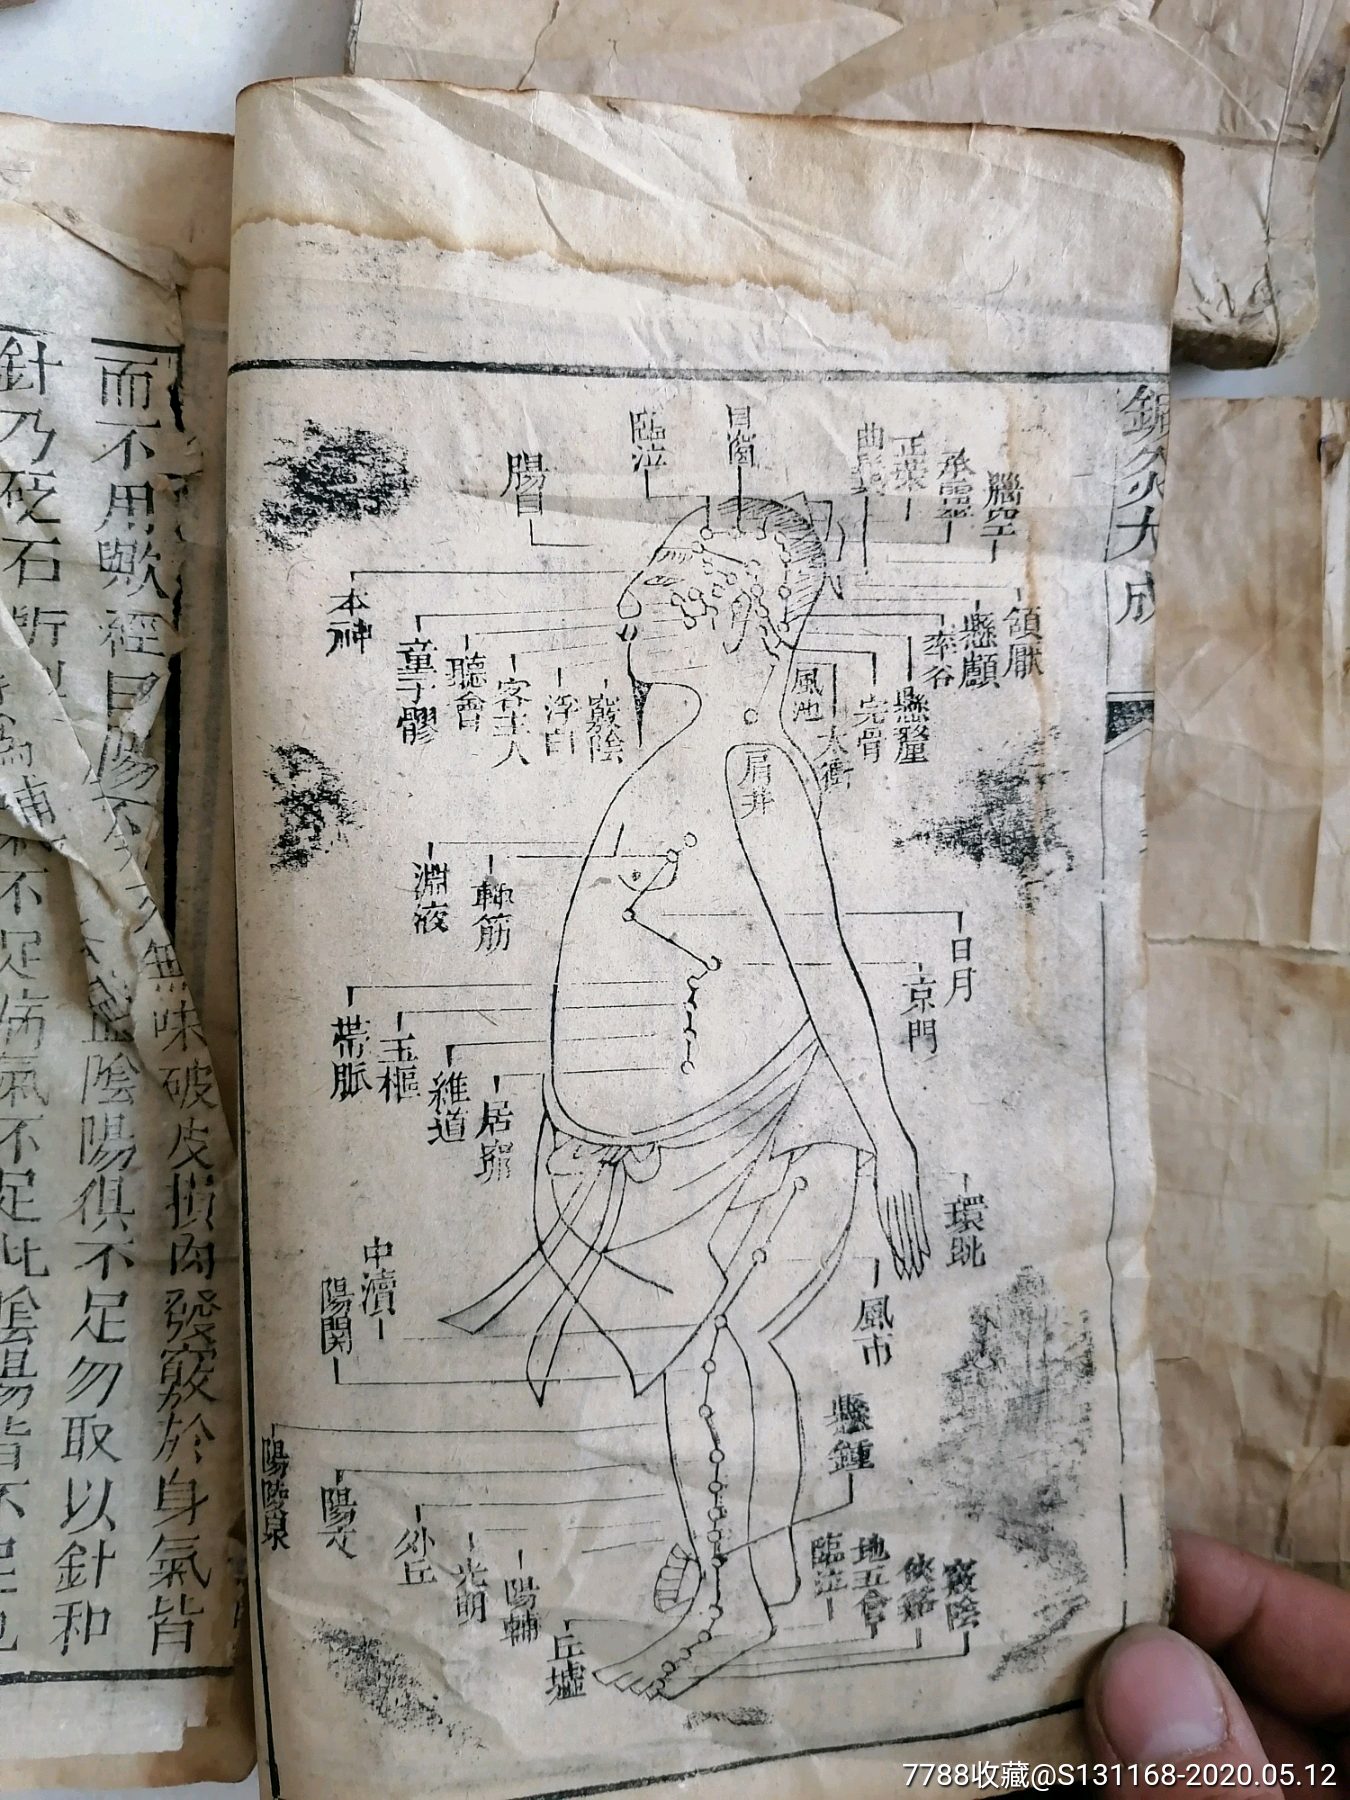 鍼灸大成
腦空
承靈
正營
目窗
臨泣
陽白
本神
頷厭
懸顱
率谷
懸釐
完骨
風池
肩井
竅陰
浮白
客主人
聽會
童子髎
淵液
輒筋
日月
京門
帶脈
五樞
維道
居窌
環跳
風市
中瀆
陽關
懸鍾
陽陵泉
陽交
外丘
光明
陽輔
丘墟
竅陰
俠谿
地五會
臨泣
味破皮損肉發竅於身氣皆
而不用歟經曰陽不
陰陽俱不足勿取以針和
針乃砭石所
不足病氣不足此陰陽皆不足也
7788收藏@S131168-2020.05.12